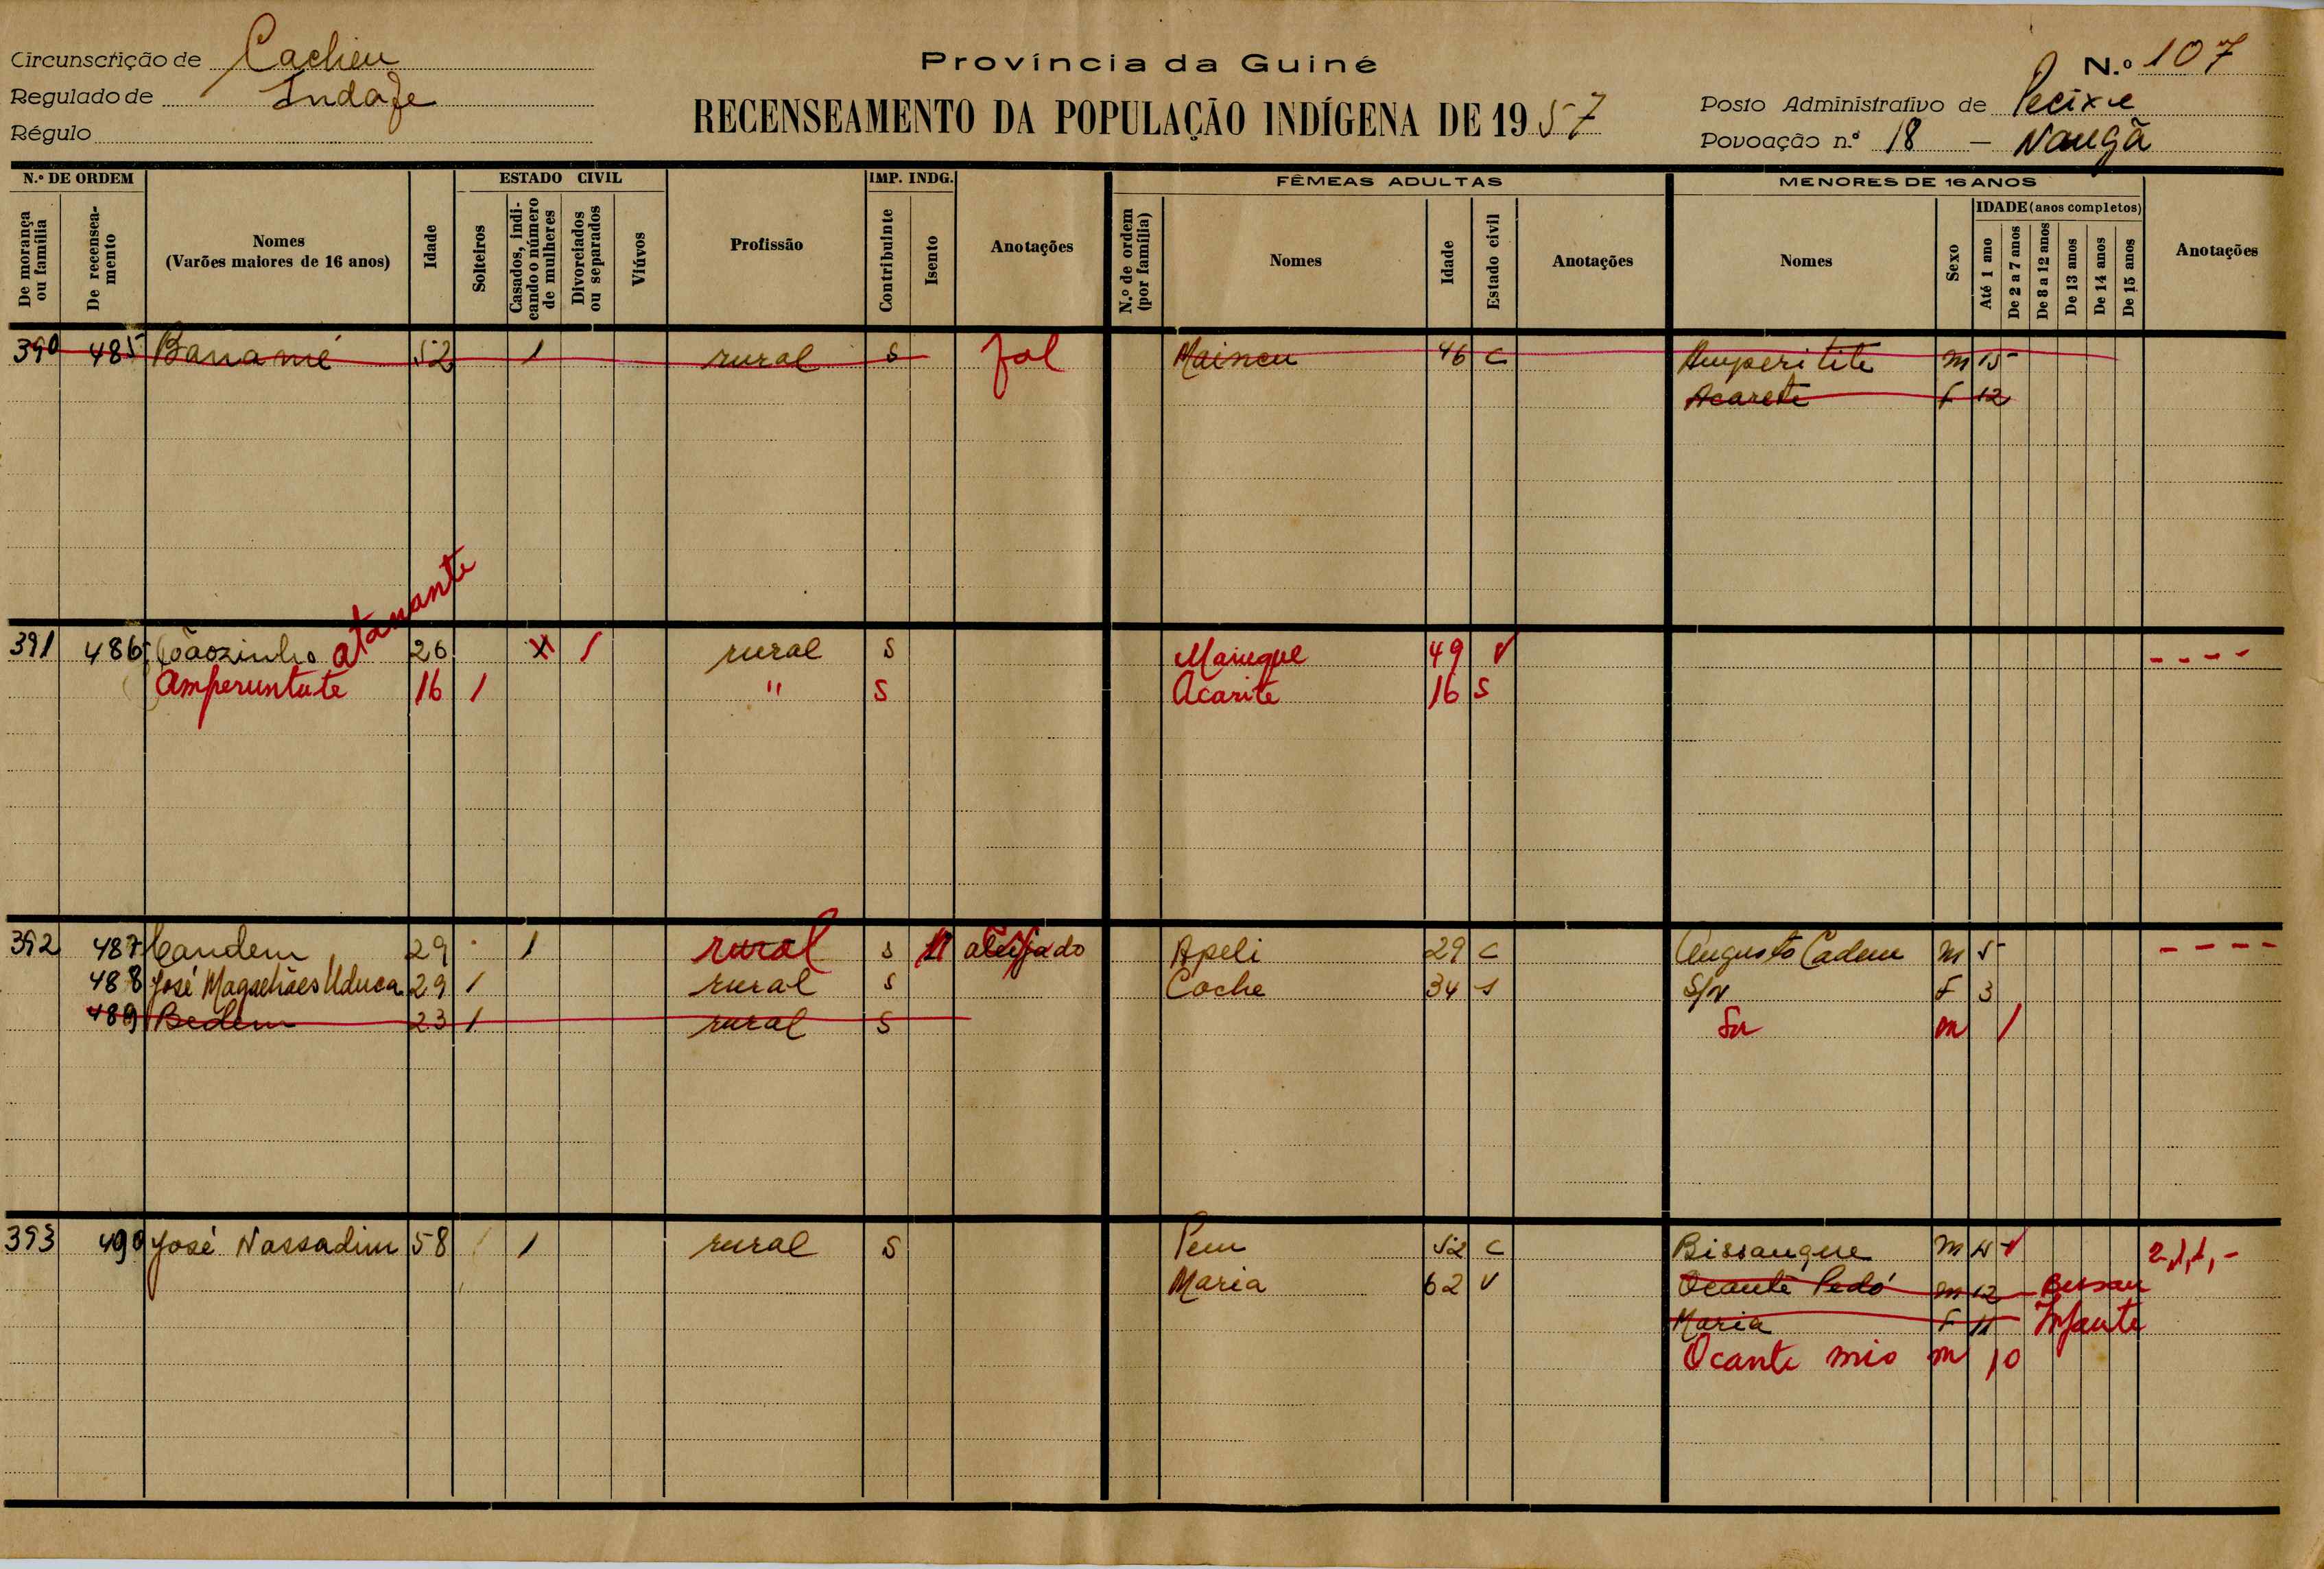 Circunscrição de Cacheu
Regulado de Indafe
Régulo
Província da Guiné
RECENSEAMENTO DA POPULAÇÃO INDÍGENA DE 19 57
N.º 107
Posto Administrativo de Pecixe
Povoação n.º 18 — Naugã
N.º DE ORDEM
De morança ou família
De recenseamento
Nomes
(Varões maiores de 16 anos)
Idade
ESTADO CIVIL
Solteiros
Casados, indicando o número de mulheres
Divorciados ou separados
Viúvos
Profissão
IMP. INDG.
Contribuinte
Isento
Anotações
FÊMEAS ADULTAS
N.º de ordem (por família)
Nomes
Idade
Estado civil
Anotações
MENORES DE 16 ANOS
Nomes
Sexo
IDADE (anos completos)
Até 1 ano
De 2 a 7 anos
De 8 a 12 anos
De 13 anos
De 14 anos
De 15 anos
Anotações
390 485 Banamé 52 1 rural s fal Maincu 46 c Amperitite m 15
Acarete f 12
391 486 Joãozinho atanante 26 X 1 rural s Maiugue 49 v - - - -
Amperuntute 16 1 " s Acarite 16 s
392 487 Candem 29 1 rural s 11 aleijado Apeli 29 c Augusto Cadem m 5 - - - -
488 José Magalhães Uduca 29 1 rural s Coche 34 s S/N f 3
489 Bedem 23 1 rural s Sn m 1
393 490 José Nassadim 58 1 rural s Pem 52 c Bissaugue m 2,1,1,-
Maria 62 v Ocante Pedó m 12 Bissau
Maria f 11 Infante
Ocante mio m 10